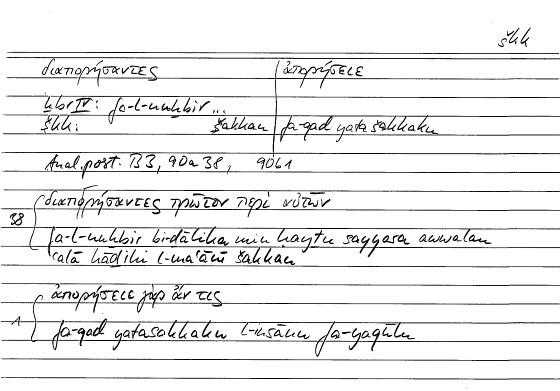 škk
διαπορήσαντες ἀπορήσειε
ḫbr IV: fa-l-nuḫbir ...
škk: šakkan fa-qad yatašakkaku
Anal. post. B3, 90a38, 90b1
38 διαπορήσαντες πρῶτον περὶ αὐτῶν
fa-l-nuḫbir bi-ḏālika min ḥayṯu
ʿalā hāḏihi l-maʿānī šakkan
1 ἀπορήσειε γὰρ ἄν τις
fa-qad yatašakkaku l-insānu fa-yaqūlu